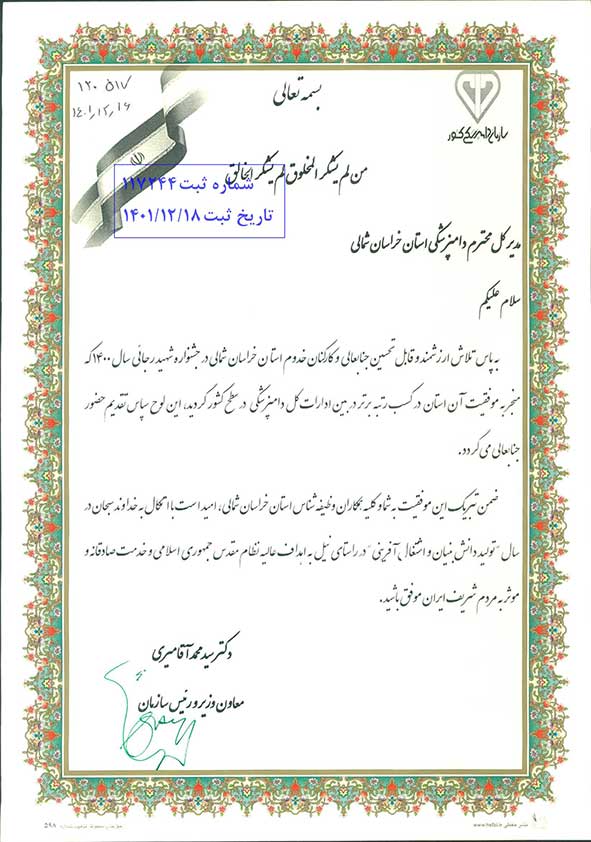 ۱۲۰۵۱۷
۱۴۰۱,۱۲,۱۶
بسمه تعالی
سازمان دامپزشکی کشور
من لم یشکر المخلوق لم یشکر الخالق
شماره ثبت ۱۱۷۲۴۴
تاریخ ثبت ۱۴۰۱/۱۲/۱۸
مدیر کل محترم دامپزشکی استان خراسان شمالی
سلام علیکم
به پاس تلاش ارزشمند و قابل تحسین جنابعالی و کارکنان خدوم استان خراسان شمالی در جشنواره شهید رجائی سال ۱۴۰۰ که
منجر به موفقیت آن استان در کسب رتبه برتر در بین ادارات کل دامپزشکی در سطح کشور گردید، این لوح سپاس تقدیم حضور
جنابعالی می گردد.
ضمن تبریک این موفقیت به شما و کلیه همکاران وظیفه شناس استان خراسان شمالی، امید است با اتکال به خداوند سبحان در
سال "تولید دانش بنیان و اشتغال آفرینی" در راستای نیل به اهداف عالیه نظام مقدس جمهوری اسلامی و خدمت صادقانه و
موثر به مردم شریف ایران موفق باشید.
دکتر سید محمد آقامیری
معاون وزیر و رئیس سازمان
۵۹۸